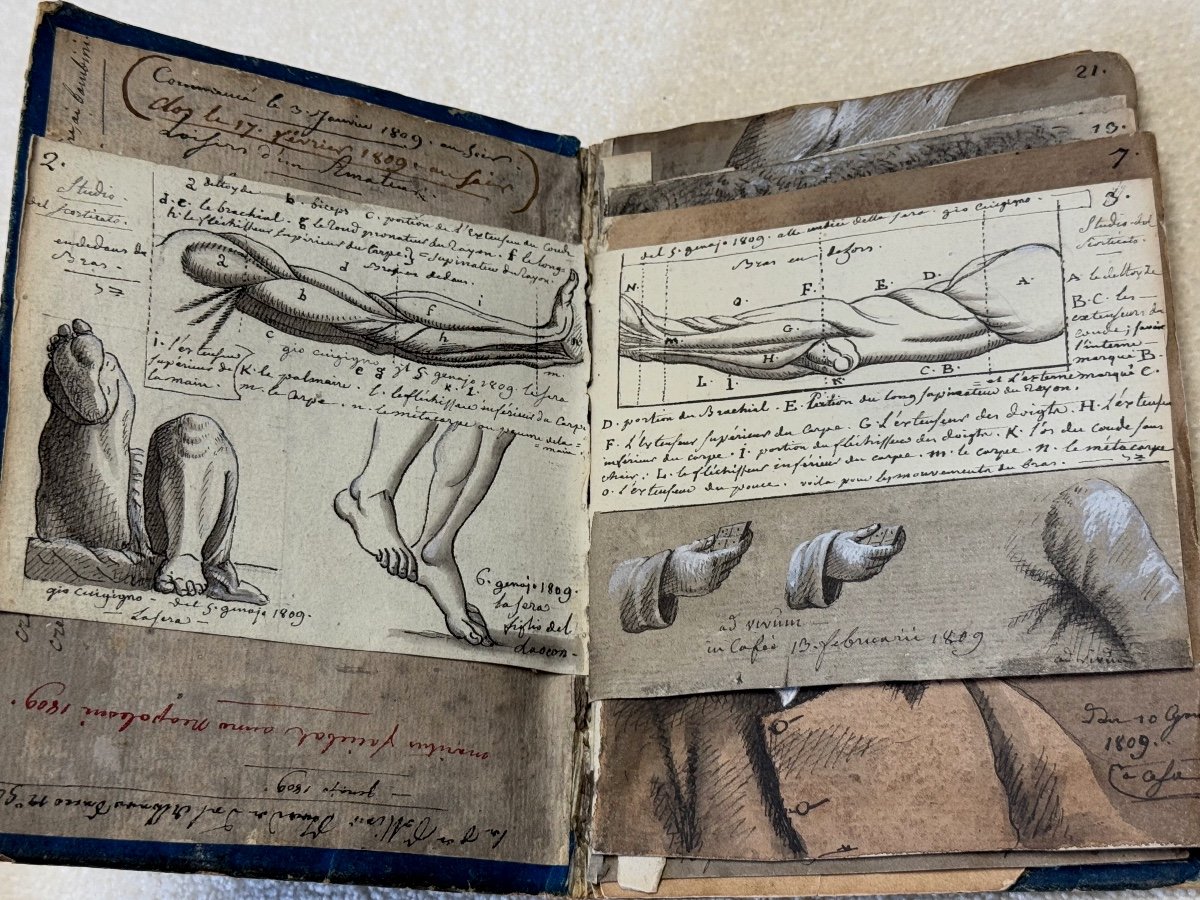 (Commencé le 3. Janvier 1809. au Soir.
clos le 17. février 1809. au Soir)
Loisirs d'un Amateur
2.
Studio
del Scorticato.
en dedans du
Bras.
a deltoyde b. biceps c. portion de l'extenseur du Coude
d. e. le brachial. g le rond pronateur du Rayon. f le long
h. le fléchisseur supérieur du Carpe = supinateur du Rayon
Bras en dedans.
a
b
c
d
e
f
g
h
i
k
l
m.
n
gio cirigigno del 5 genajo 1809. la sera
i. l'extenseur
supérieur de
la main.
K. le palmaire. l. le fléchisseur inférieur du Carpe
m. le Carpe. n. le métacarpe ou paume de la =
= main.
gio cirigigno - del 5. genajo 1809.
La sera
6. genajo 1809.
la sera
figlio del
Laocon.
manibus faciebat anno Neapolioni 1809.
genajo 1809.
21.
13.
7.
3.
Studio del
Scorticato.
del 5. genajo 1809. alle undici della sera. gio cirigigno.
Bras en dehors.
N.
O.
F.
E.
D.
A.
G.
M
H
L
I.
K
C. B
A le deltoyde
B. C. les
extenseurs du
coude; savoir
l'interne
marqué B.
et l'externe marqué C.
D. portion du Brachial. E. Portion du long supinateur du Rayon.
F. l'extenseur supérieur du Carpe. G. l'extenseur des doigts. H. l'extenseur
inférieur du carpe. I. portion du fléchisseur des doigts. K. l'os du coude sans
chair. L. le fléchisseur inférieur du carpe. M. le carpe. N. le métacarpe
O. l'extenseur du pouce. voilà pour les mouvements du bras.
ad vivum
in Cafeè 13. februarii 1809
ad vivum
Du 10
1809.